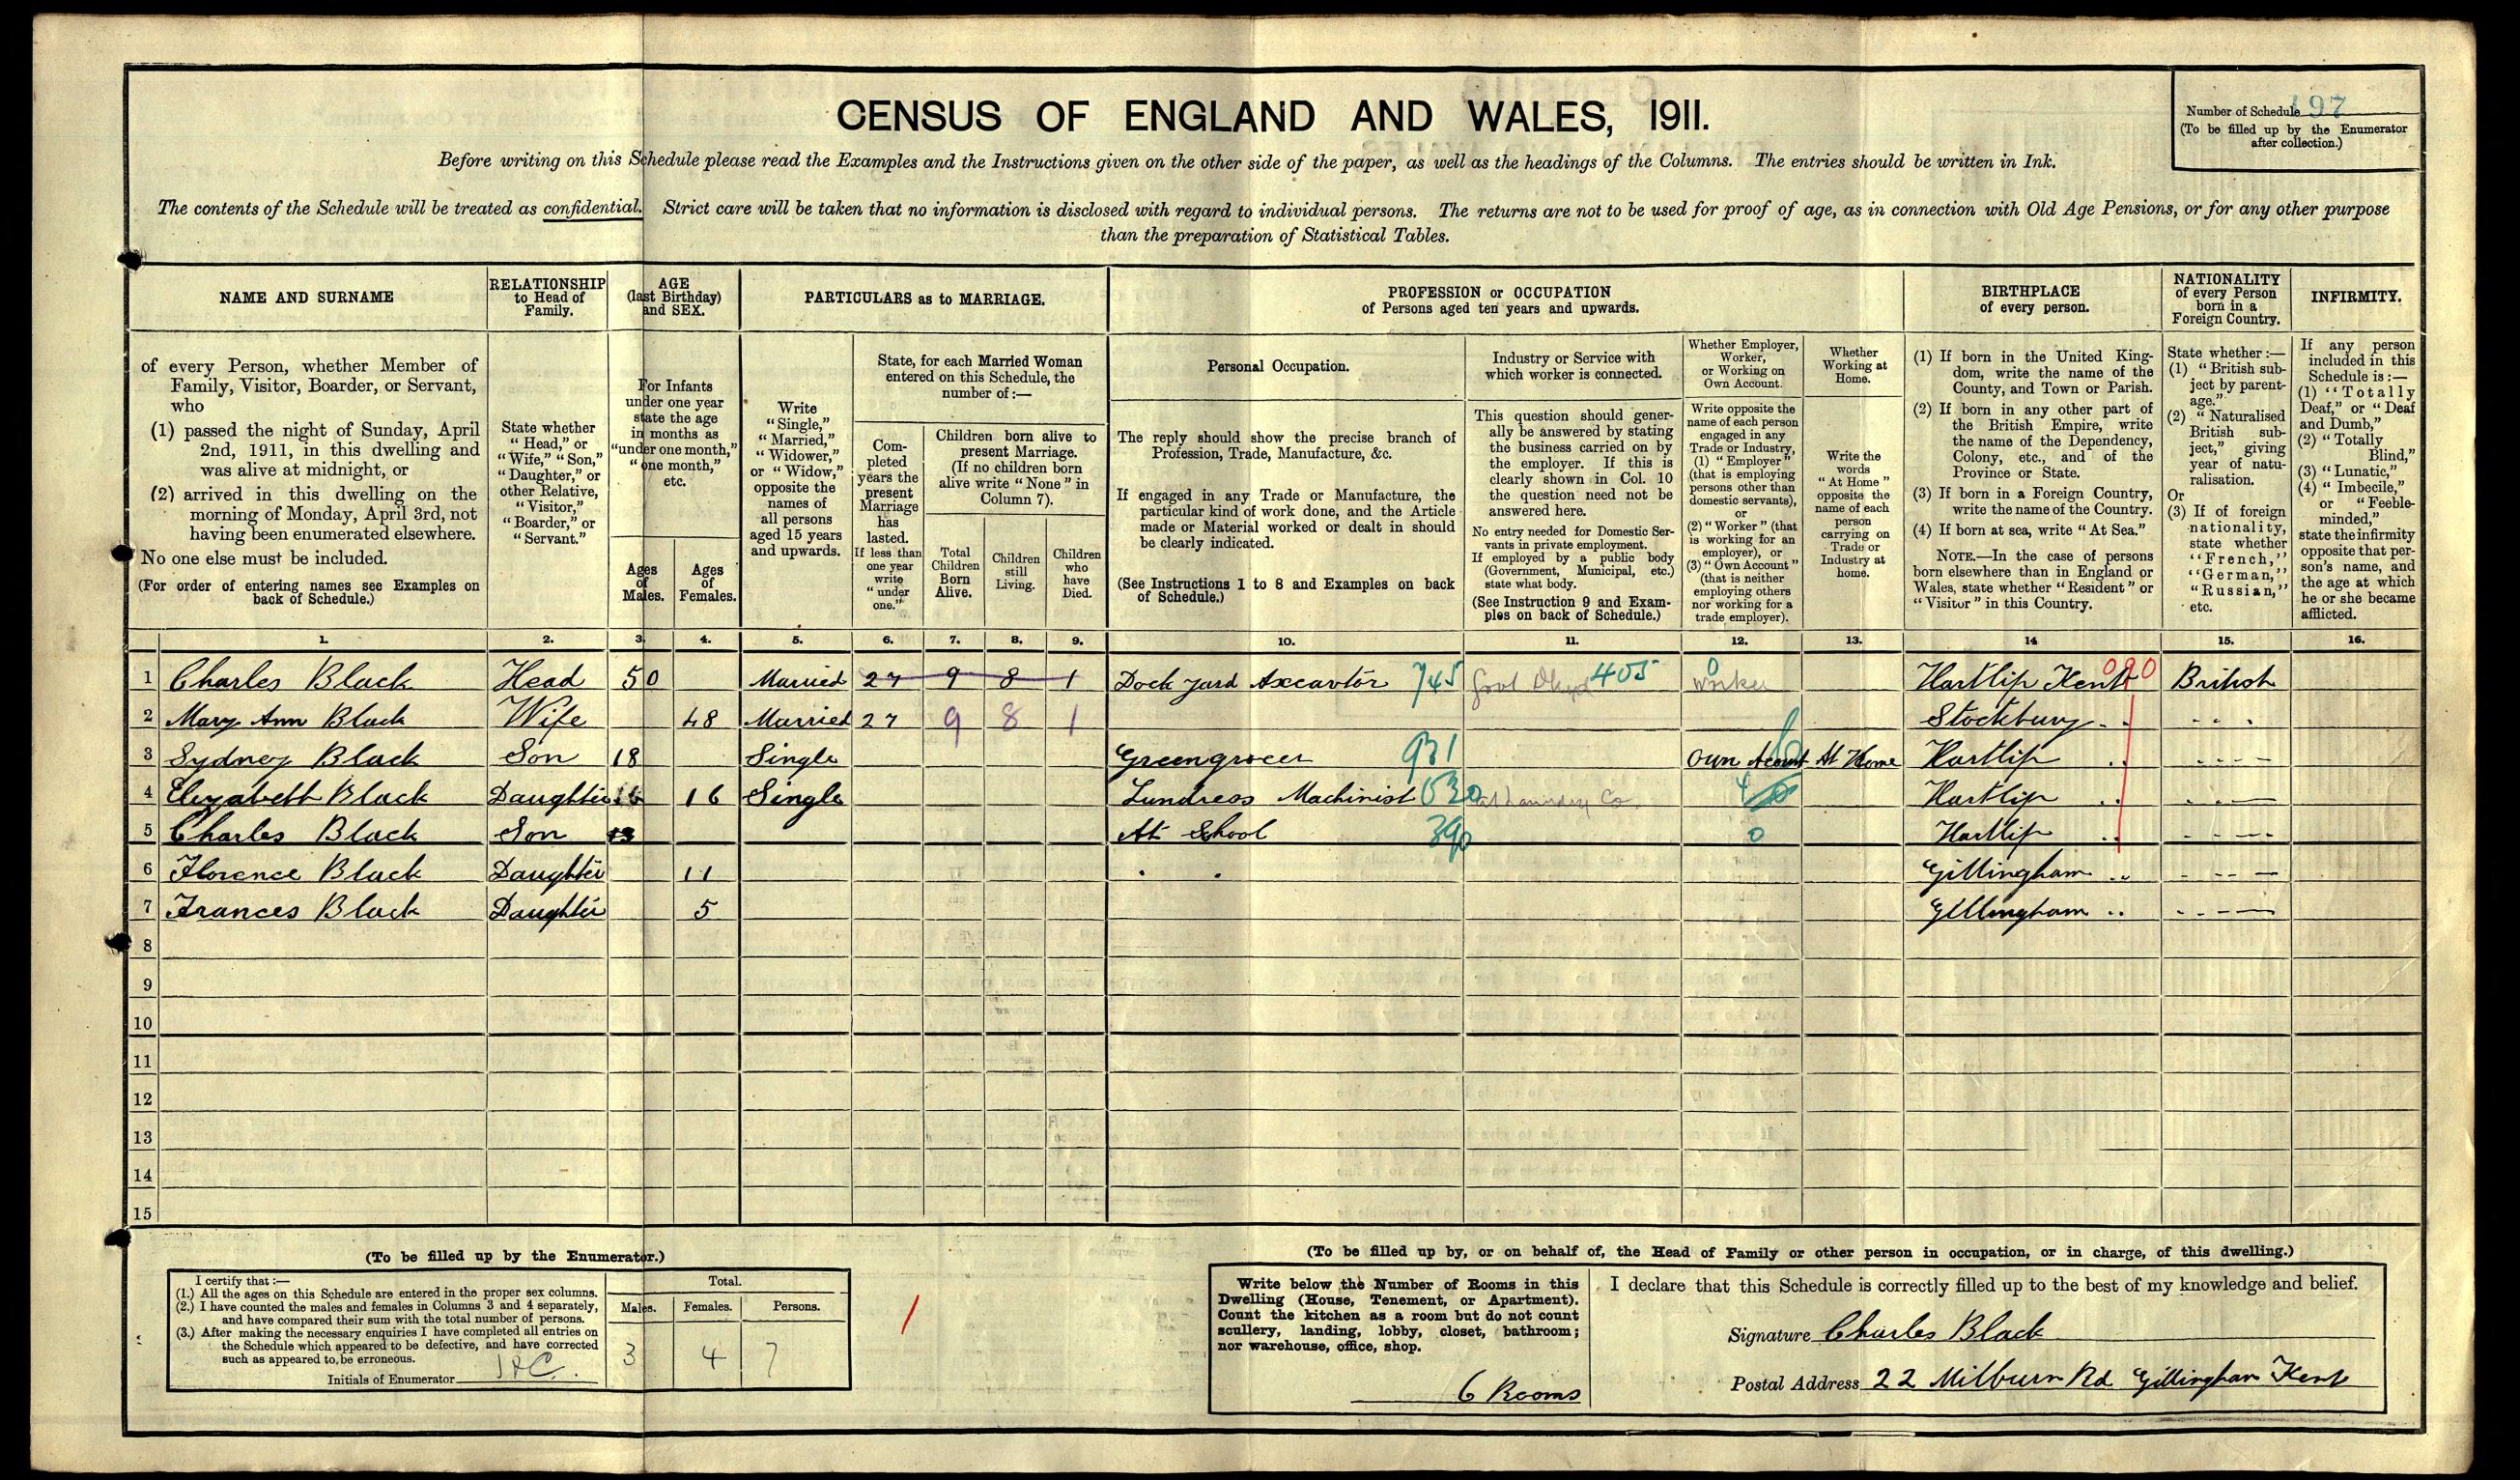 CENSUS OF ENGLAND AND WALES, 1911.
Number of Schedule 197
(To be filled up by the Enumerator
after collection.)
Before writing on this Schedule please read the Examples and the Instructions given on the other side of the paper, as well as the headings of the Columns. The entries should be written in Ink.
The contents of the Schedule will be treated as confidential. Strict care will be taken that no information is disclosed with regard to individual persons. The returns are not to be used for proof of age, as in connection with Old Age Pensions, or for any other purpose
than the preparation of Statistical Tables.
NAME AND SURNAME
of every Person, whether Member of
Family, Visitor, Boarder, or Servant,
who
(1) passed the night of Sunday, April
2nd, 1911, in this dwelling and
was alive at midnight, or
(2) arrived in this dwelling on the
morning of Monday, April 3rd, not
having been enumerated elsewhere.
No one else must be included.
(For order of entering names see Examples on
back of Schedule.)
RELATIONSHIP
to Head of
Family.
State whether
"Head," or
"Wife," "Son,"
"Daughter," or
other Relative,
"Visitor,"
"Boarder," or
"Servant."
AGE
(last Birthday)
and SEX.
For Infants
under one year
state the age
in months as
"under one month,"
"one month,"
etc.
Ages
of
Males.
Ages
of
Females.
PARTICULARS as to MARRIAGE.
Write
"Single,"
"Married,"
"Widower,"
or "Widow,"
opposite the
names of
all persons
aged 15 years
and upwards.
State, for each Married Woman
entered on this Schedule, the
number of:—
Com-
pleted
years the
present
Marriage
has
lasted.
If less than
one year
write
"under
one."
Children born alive to
present Marriage.
(If no children born
alive write "None" in
Column 7).
Total
Children
Born
Alive.
Children
still
Living.
Children
who
have
Died.
PROFESSION or OCCUPATION
of Persons aged ten years and upwards.
Personal Occupation.
The reply should show the precise branch of
Profession, Trade, Manufacture, &c.
If engaged in any Trade or Manufacture, the
particular kind of work done, and the Article
made or Material worked or dealt in should
be clearly indicated.
(See Instructions 1 to 8 and Examples on back
of Schedule.)
Industry or Service with
which worker is connected.
This question should gener-
ally be answered by stating
the business carried on by
the employer. If this is
clearly shown in Col. 10
the question need not be
answered here.
No entry needed for Domestic Ser-
vants in private employment.
If employed by a public body
(Government, Municipal, etc.)
state what body.
(See Instruction 9 and Exam-
ples on back of Schedule.)
Whether Employer,
Worker,
or Working on
Own Account.
Write opposite the
name of each person
engaged in any
Trade or Industry,
(1) "Employer"
(that is employing
persons other than
domestic servants),
or
(2) "Worker" (that
is working for an
employer), or
(3) "Own Account"
(that is neither
employing others
nor working for a
trade employer).
Whether
Working at
Home.
Write the
words
"At Home"
opposite the
name of each
person
carrying on
Trade or
Industry at
home.
BIRTHPLACE
of every person.
(1) If born in the United King-
dom, write the name of the
County, and Town or Parish.
(2) If born in any other part of
the British Empire, write
the name of the Dependency,
Colony, etc., and of the
Province or State.
(3) If born in a Foreign Country,
write the name of the Country.
(4) If born at sea, write "At Sea."
NOTE.—In the case of persons
born elsewhere than in England or
Wales, state whether "Resident" or
"Visitor" in this Country.
NATIONALITY
of every Person
born in a
Foreign Country.
State whether:—
(1) "British sub-
ject by parent-
age."
(2) "Naturalised
British sub-
ject," giving
year of natu-
ralisation.
Or
(3) If of foreign
nationality,
state whether
"French,"
"German,"
"Russian,"
etc.
INFIRMITY.
If any person
included in this
Schedule is:—
(1) "Totally
Deaf," or "Deaf
and Dumb,"
(2) "Totally
Blind,"
(3) "Lunatic,"
(4) "Imbecile,"
or "Feeble-
minded,"
state the infirmity
opposite that per-
son's name, and
the age at which
he or she became
afflicted.
1. 2. 3. 4. 5. 6. 7. 8. 9. 10. 11. 12. 13. 14 15. 16.
1 Charles Black Head 50 Married 27 9 8 1 Dock yard Axcavtor 745 405 0 Worker Hartlip Kent 090 British
2 Mary Ann Black Wife 48 Married 27 9 8 1 Stockbury
3 Sydney Black Son 18 Single Greengrocer 931 Own Acount At Home Hartlip
4 Elizabeth Black Daughter 16 16 Single Lundress Machinist 030 Laundry Co. 4 Hartlip
5 Charles Black Son 13 At School 390 0 Hartlip
6 Florence Black Daughter 11 Gillingham
7 Frances Black Daughter 5 Gillingham
8
9
10
11
12
13
14
15
(To be filled up by the Enumerator.)
I certify that:—
(1.) All the ages on this Schedule are entered in the proper sex columns.
(2.) I have counted the males and females in Columns 3 and 4 separately,
and have compared their sum with the total number of persons.
(3.) After making the necessary enquiries I have completed all entries on
the Schedule which appeared to be defective, and have corrected
such as appeared to be erroneous.
Initials of Enumerator
Total.
Males. Females. Persons.
3 4 7
(To be filled up by, or on behalf of, the Head of Family or other person in occupation, or in charge, of this dwelling.)
Write below the Number of Rooms in this
Dwelling (House, Tenement, or Apartment).
Count the kitchen as a room but do not count
scullery, landing, lobby, closet, bathroom;
nor warehouse, office, shop.
6 Rooms
I declare that this Schedule is correctly filled up to the best of my knowledge and belief.
Signature Charles Black
Postal Address 22 Milburn Rd Gillingham Kent